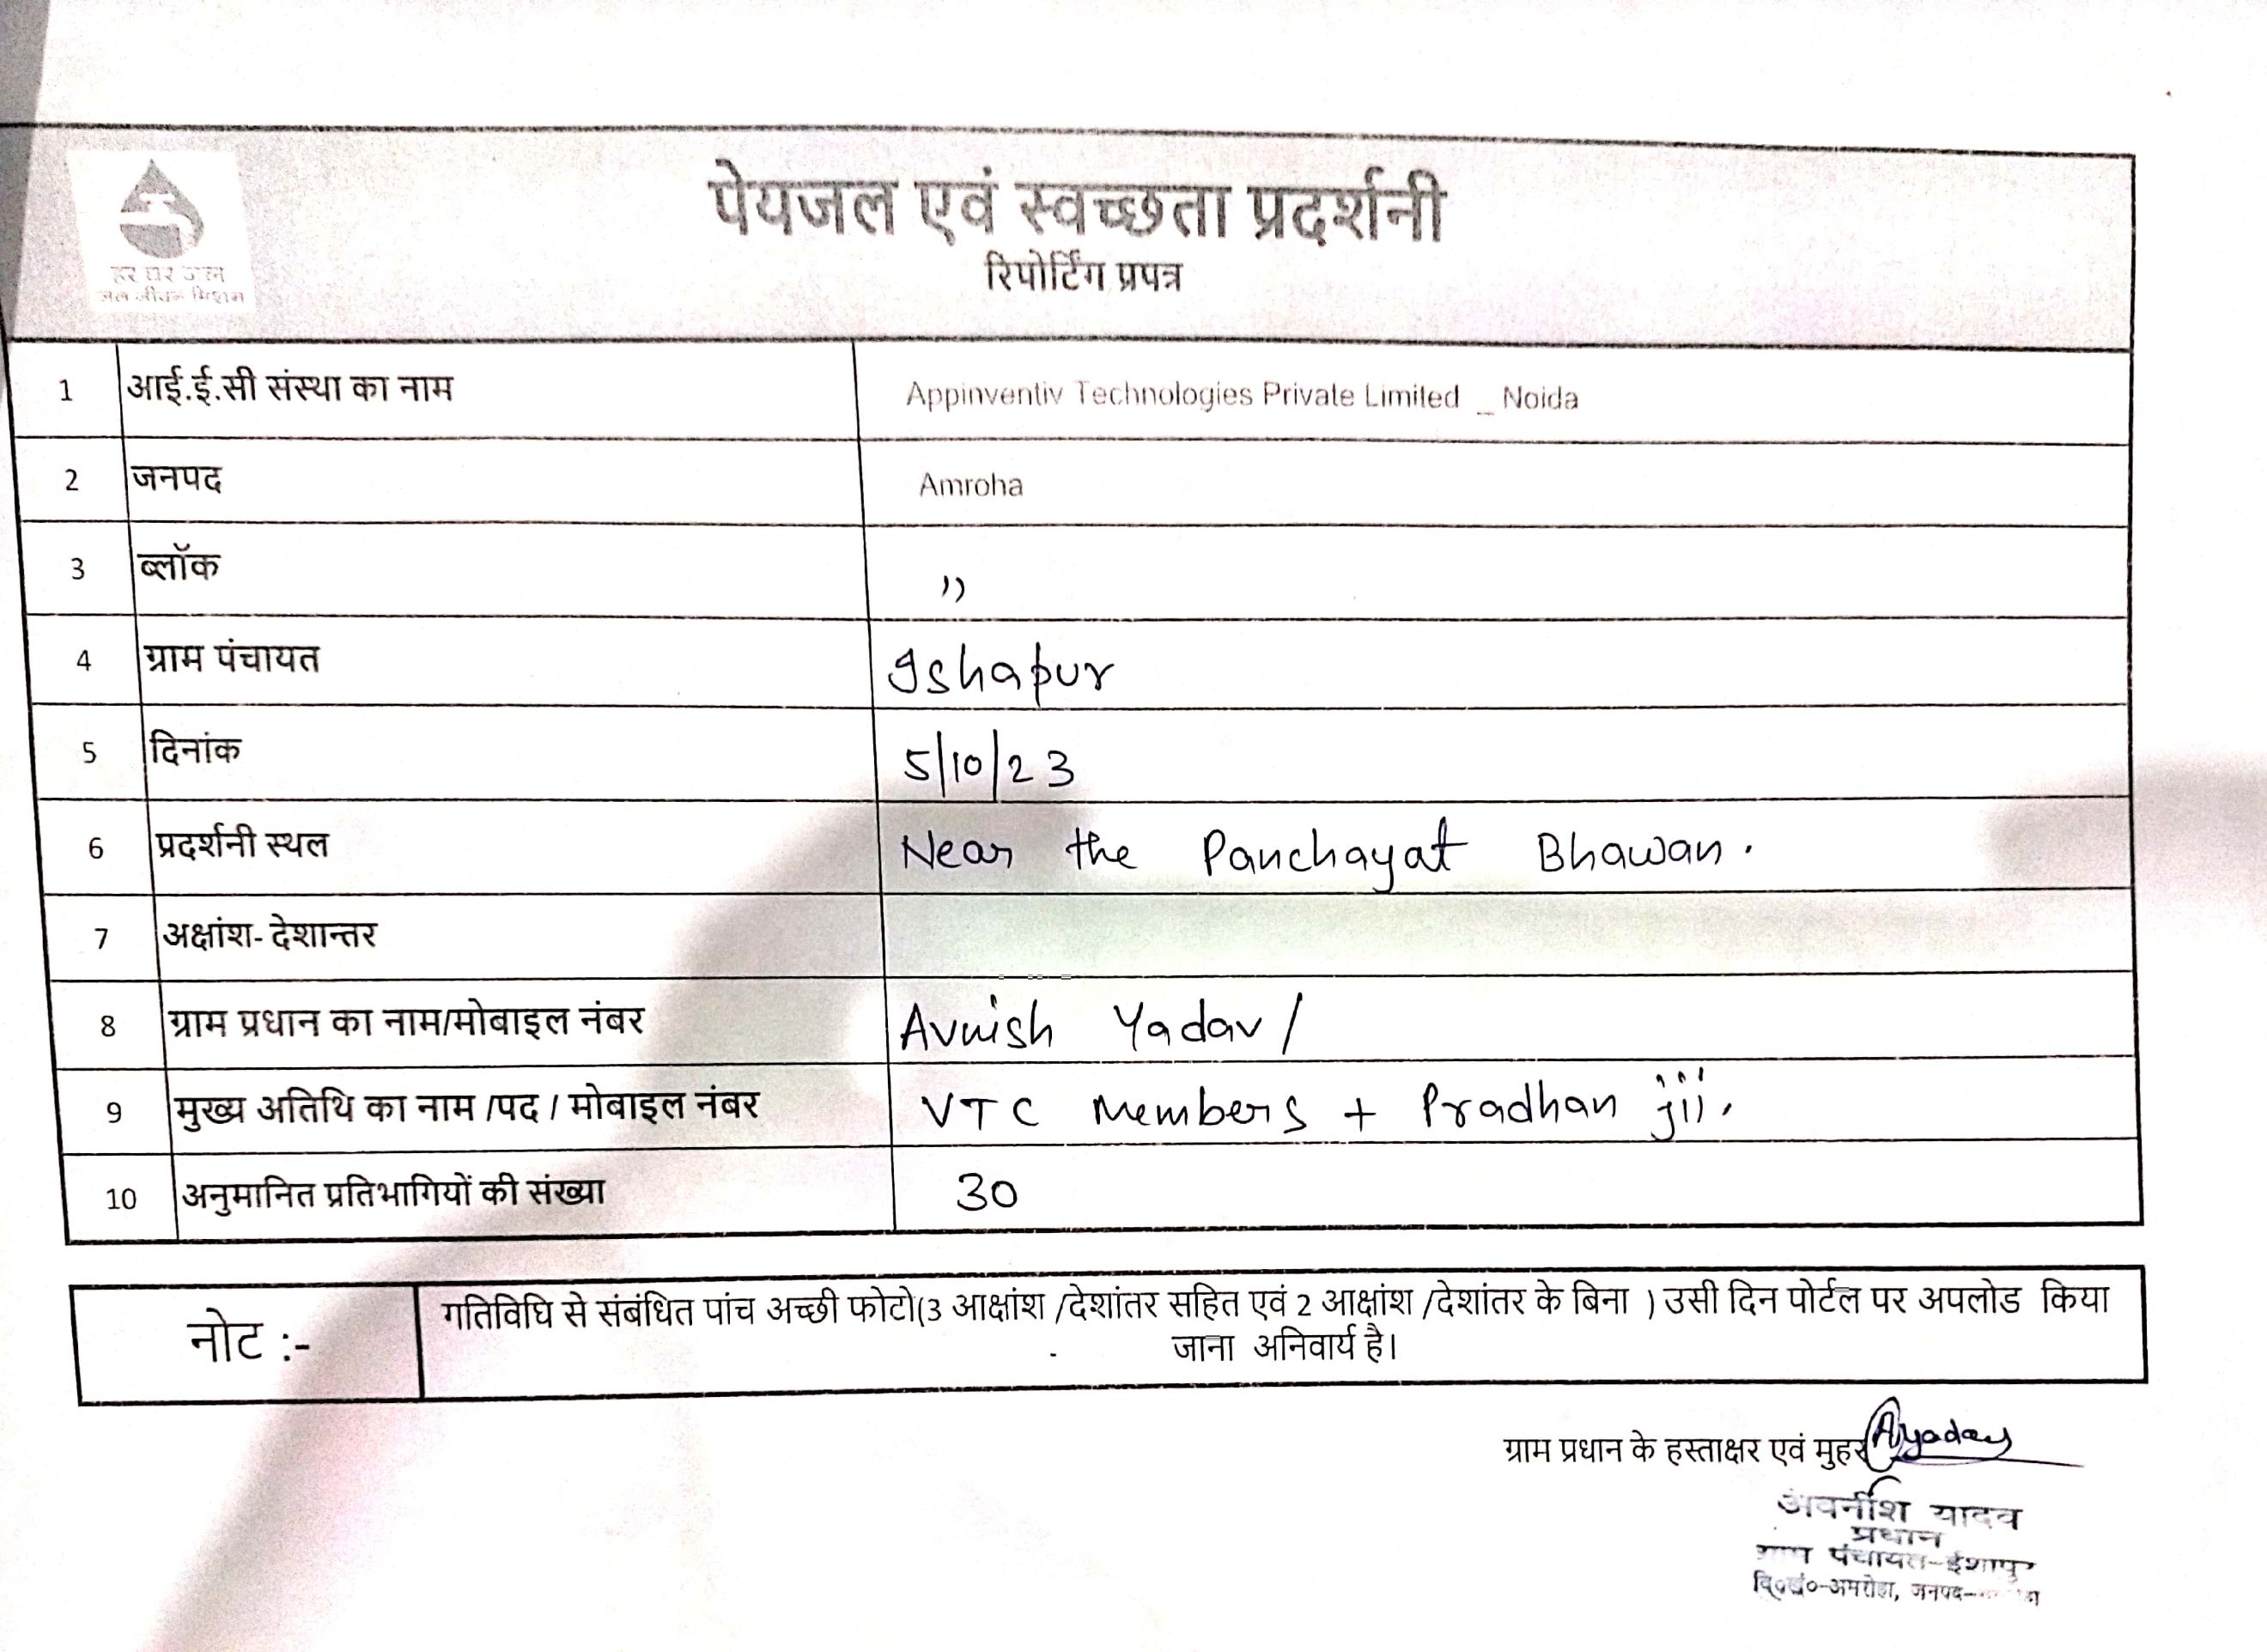 हर घर जल
जल जीवन मिशन
पेयजल एवं स्वच्छता प्रदर्शनी
रिपोर्टिंग प्रपत्र
1 आई.ई.सी संस्था का नाम Appinventiv Technologies Private Limited _ Noida
2 जनपद Amroha
3 ब्लॉक ,,
4 ग्राम पंचायत Ishapur
5 दिनांक 5/10/23
6 प्रदर्शनी स्थल Near the Panchayat Bhawan.
7 अक्षांश- देशान्तर
8 ग्राम प्रधान का नाम/मोबाइल नंबर Avnish Yadav /
9 मुख्य अतिथि का नाम /पद / मोबाइल नंबर VTC Members + Pradhan jii.
10 अनुमानित प्रतिभागियों की संख्या 30
नोट :- गतिविधि से संबंधित पांच अच्छी फोटो(3 आक्षांश /देशांतर सहित एवं 2 आक्षांश /देशांतर के बिना ) उसी दिन पोर्टल पर अपलोड किया
जाना अनिवार्य है।
ग्राम प्रधान के हस्ताक्षर एवं मुहर Ayadav
अवनीश यादव
प्रधान
ग्राम पंचायत-ईशापुर
वि०खं०-अमरोहा, जनपद-